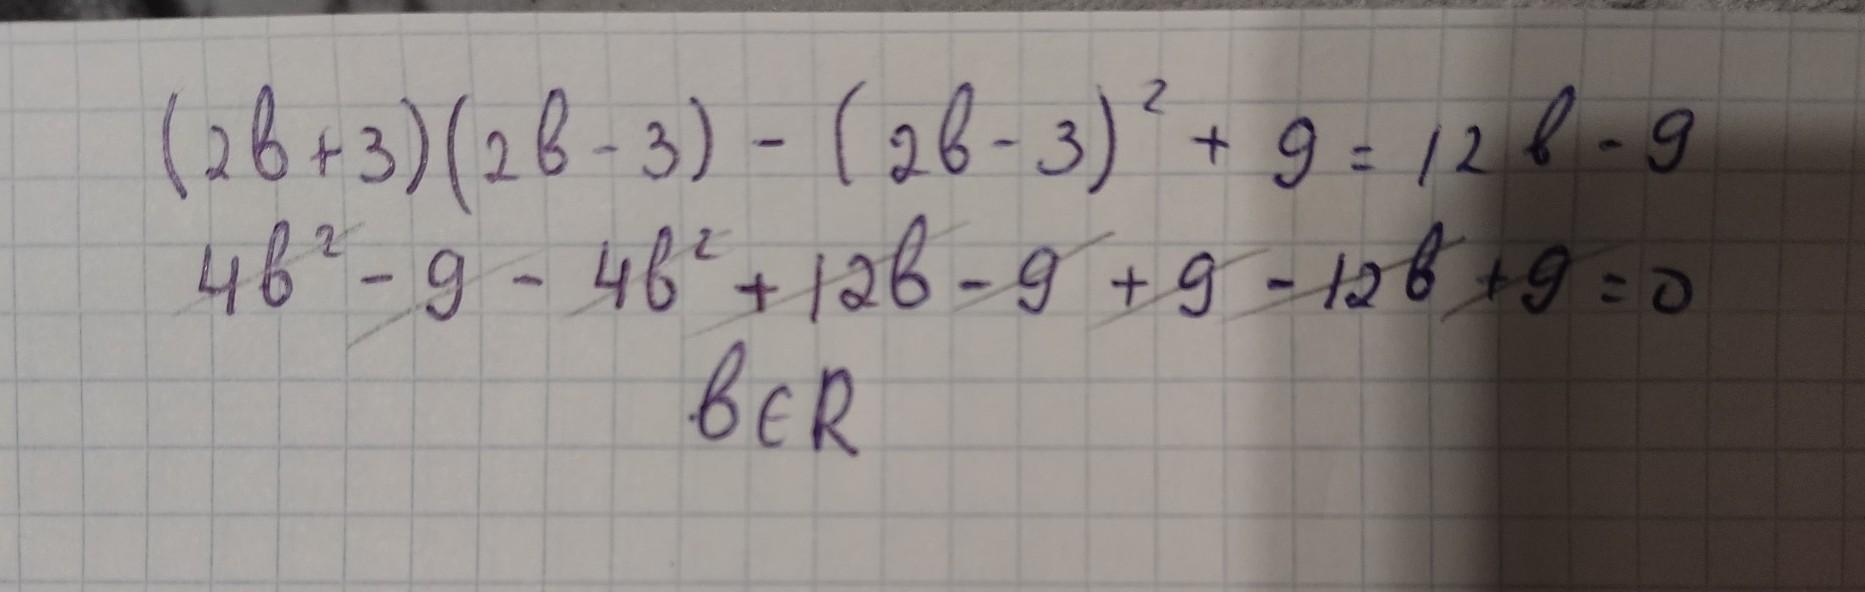 (2b+3)(2b-3) - (2b-3)² + 9 = 12b - 9
4b² - 9 - 4b² + 12b - 9 + 9 - 12b + 9 = 0
b∈R